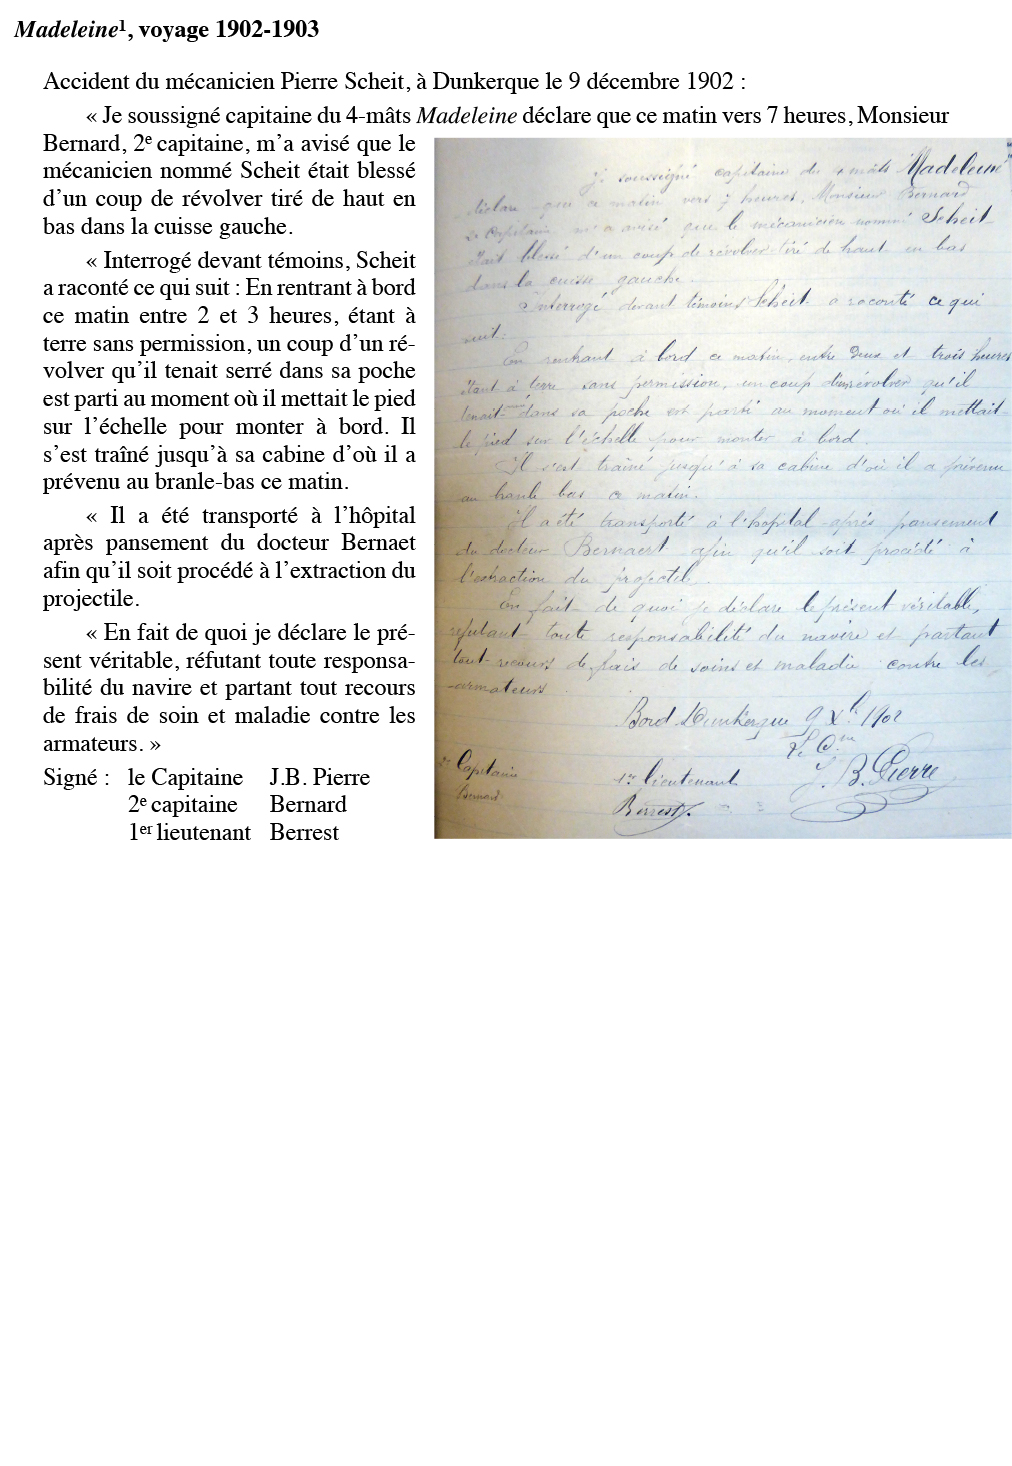 Madeleine¹, voyage 1902-1903
Accident du mécanicien Pierre Scheit, à Dunkerque le 9 décembre 1902 :
« Je soussigné capitaine du 4-mâts Madeleine déclare que ce matin vers 7 heures, Monsieur
Bernard, 2e capitaine, m’a avisé que le
mécanicien nommé Scheit était blessé
d’un coup de révolver tiré de haut en
bas dans la cuisse gauche.
« Interrogé devant témoins, Scheit
a raconté ce qui suit : En rentrant à bord
ce matin entre 2 et 3 heures, étant à
terre sans permission, un coup d’un ré-
volver qu’il tenait serré dans sa poche
est parti au moment où il mettait le pied
sur l’échelle pour monter à bord. Il
s’est traîné jusqu’à sa cabine d’où il a
prévenu au branle-bas ce matin.
« Il a été transporté à l’hôpital
après pansement du docteur Bernaet
afin qu’il soit procédé à l’extraction du
projectile.
« En fait de quoi je déclare le pré-
sent véritable, réfutant toute responsa-
bilité du navire et partant tout recours
de frais de soin et maladie contre les
armateurs. »
Signé : le Capitaine J.B. Pierre
2e capitaine Bernard
1er lieutenant Berrest
Je soussigné capitaine du 4 mâts Madeleine
déclare que ce matin vers 7 heures, Monsieur Bernard
2e Capitaine m'a avisé que le mécanicien nommé Scheit
était blessé d'un coup de révolver tiré de haut en bas
dans la cuisse gauche.
Interrogé devant témoins Scheit a raconté ce qui
suit.
En rentrant à bord ce matin, entre deux et trois heures
étant à terre sans permission, un coup d'un révolver qu'il
tenait dans sa poche est parti au moment où il mettait
le pied sur l'échelle pour monter à bord.
Il s'est traîné jusqu'à sa cabine d'où il a prévenu
au branle bas ce matin.
Il a été transporté à l'hopital après pansement
du docteur Bernaert afin qu'il soit procédé à
l'extraction du projectile.
En fait de quoi je déclare le présent véritable,
réfutant toute responsabilité du navire et partant
tout recours de frais de soins et maladie contre les
armateurs
Bord Dunkerque 9 Xbre 1902
Le Cne
2e Capitaine 1er lieutenant J. B. Pierre
Bernard Berrest